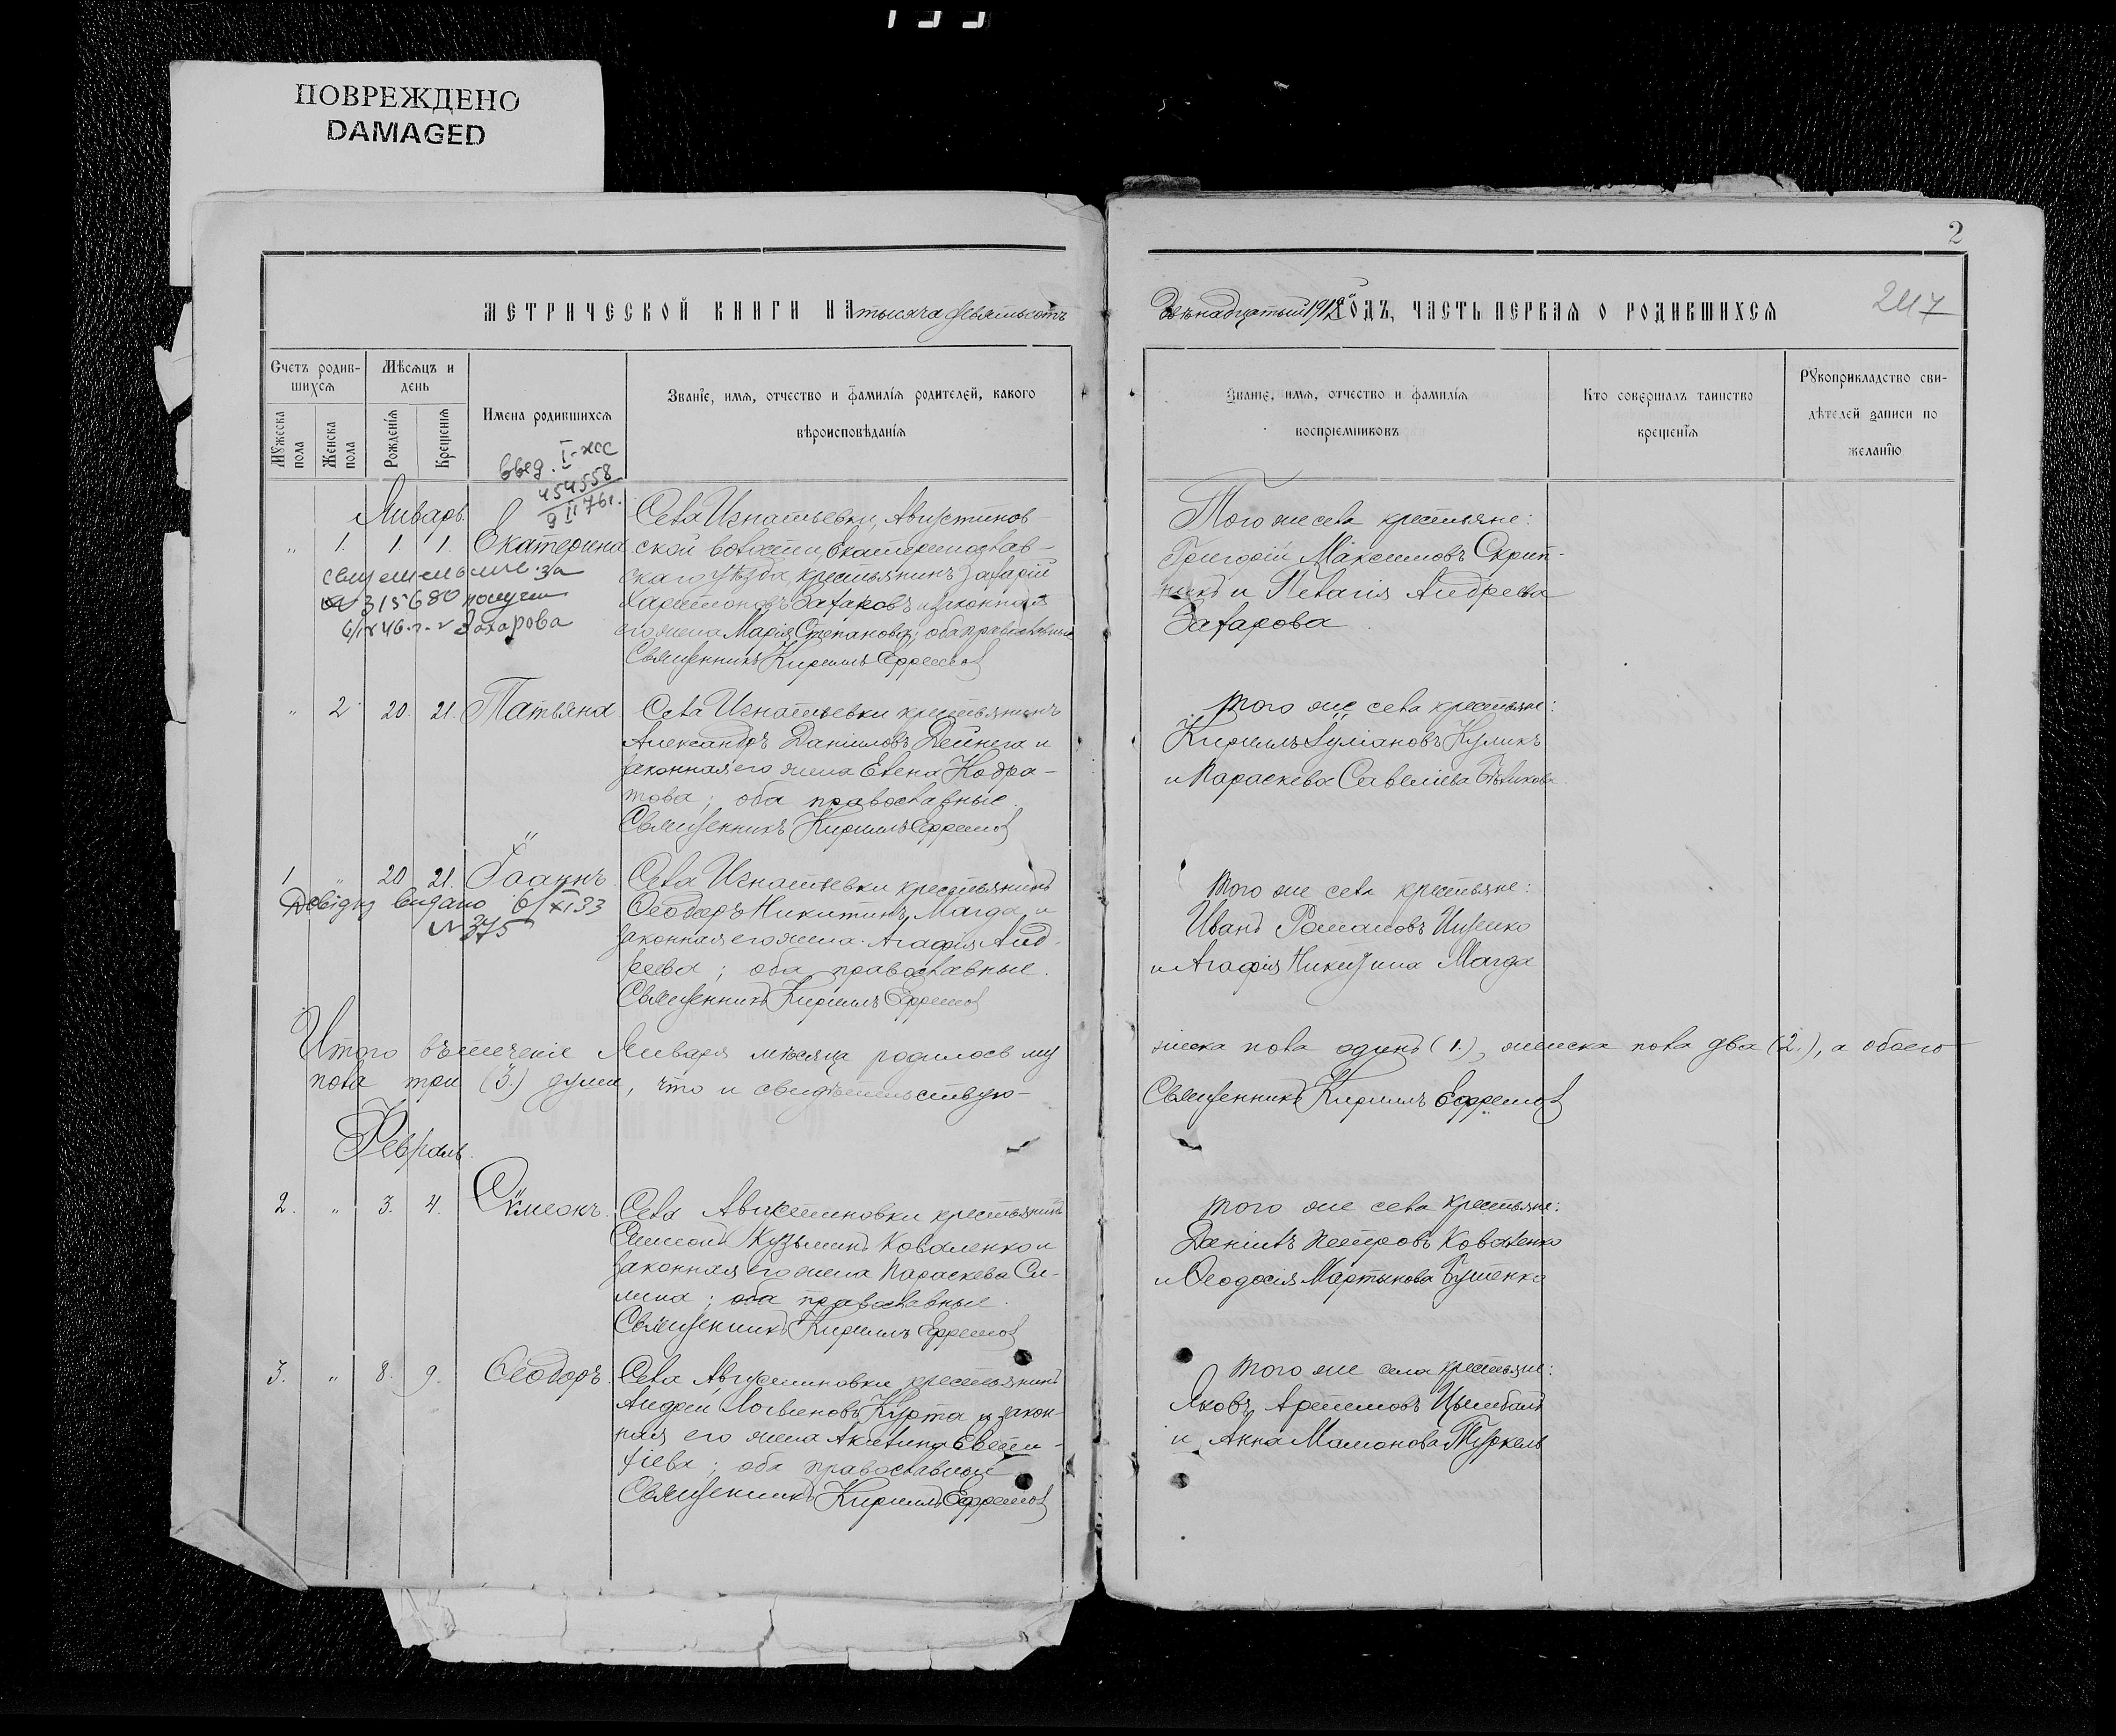 ПОВРЕЖДЕНО
DAMAGED
2
МЕТРИЧЕСКОЙ КНИГИ НА тысяча девятьсотъ
двѣнадцатый 1912й ГОДЪ, ЧАСТЬ ПЕРВАЯ О РОДИВШИХСЯ
247
Счетъ родив-
шихся
Мужеска пола
Женска пола
Мѣсяцъ и день
Рожденія
Крещенія
Имена родившихся
Званіе, имя, отчество и фамилія родителей, какого
вѣроисповѣданія
Званіе, имя, отчество и фамилія
воспріемниковъ
Кто совершалъ таинство
крещенія
Рукоприкладство сви-
дѣтелей записи по
желанію
454558
Январь.
" 1. 1. 1. Екатерина
№ 315680
Захарова
Села Игнатьевки, Августинов-
ской волости, Екатеринослав-
скаго уѣзда, крестьянинъ Захарій
Харитоновъ Захаровъ и законная
его жена Марія Степанова; оба православные
Священникъ Кириллъ Ефремов
Того же села крестьяне:
Григорій Максимовъ Скрип-
никъ и Пелагія Андреева
Захарова
" 2 20. 21. Татьяна
Села Игнатьевки крестьянинъ
Александръ Данииловъ Дейнега и
законная его жена Елена Кодра-
това; оба православные.
Священникъ Кириллъ Ефремов
Того же села крестьяне:
Кириллъ Іуліановъ Куликъ
и Параскева Савеліева Бѣликова
1 " 20 21. Іоаннъ.
Довідку видано 6/XI 33
№ 375
Села Игнатьевки крестьянинъ
Ѳеодоръ Никитинъ Магда и
законная его жена Агафія Анд-
реева; оба православные.
Священникъ Кириллъ Ефремов
Того же села крестьяне:
Иванъ Романовъ Ищенко
и Агафія Никитина Магда
Итого въ теченіе Января мѣсяца родилось му
жеска пола одинъ (1.), женска пола два (2.), а обоего
пола три (3.) души, что и свидѣтельствую-
Священникъ Кириллъ Ефремов
Февраль.
2. " 3. 4. Сѵмеонъ.
Села Августиновки крестьянинъ
Симеонъ Кузьминъ Коваленко и
законная его жена Параскева Си-
мина; оба православные.
Священникъ Кириллъ Ефремов
Того же села крестьяне:
Даніилъ Петровъ Коваленко
и Ѳеодосія Мартынова Бутенко
3. " 8. 9. Ѳеодоръ.
Села Августиновки крестьянинъ
Андрей Логвиновъ Курта и закон-
ная его жена Акилина Евти-
хіева; оба православные
Священникъ Кириллъ Ефремов
Того же села крестьяне:
Яковъ Артемовъ Цымбалъ
и Анна Мамонова